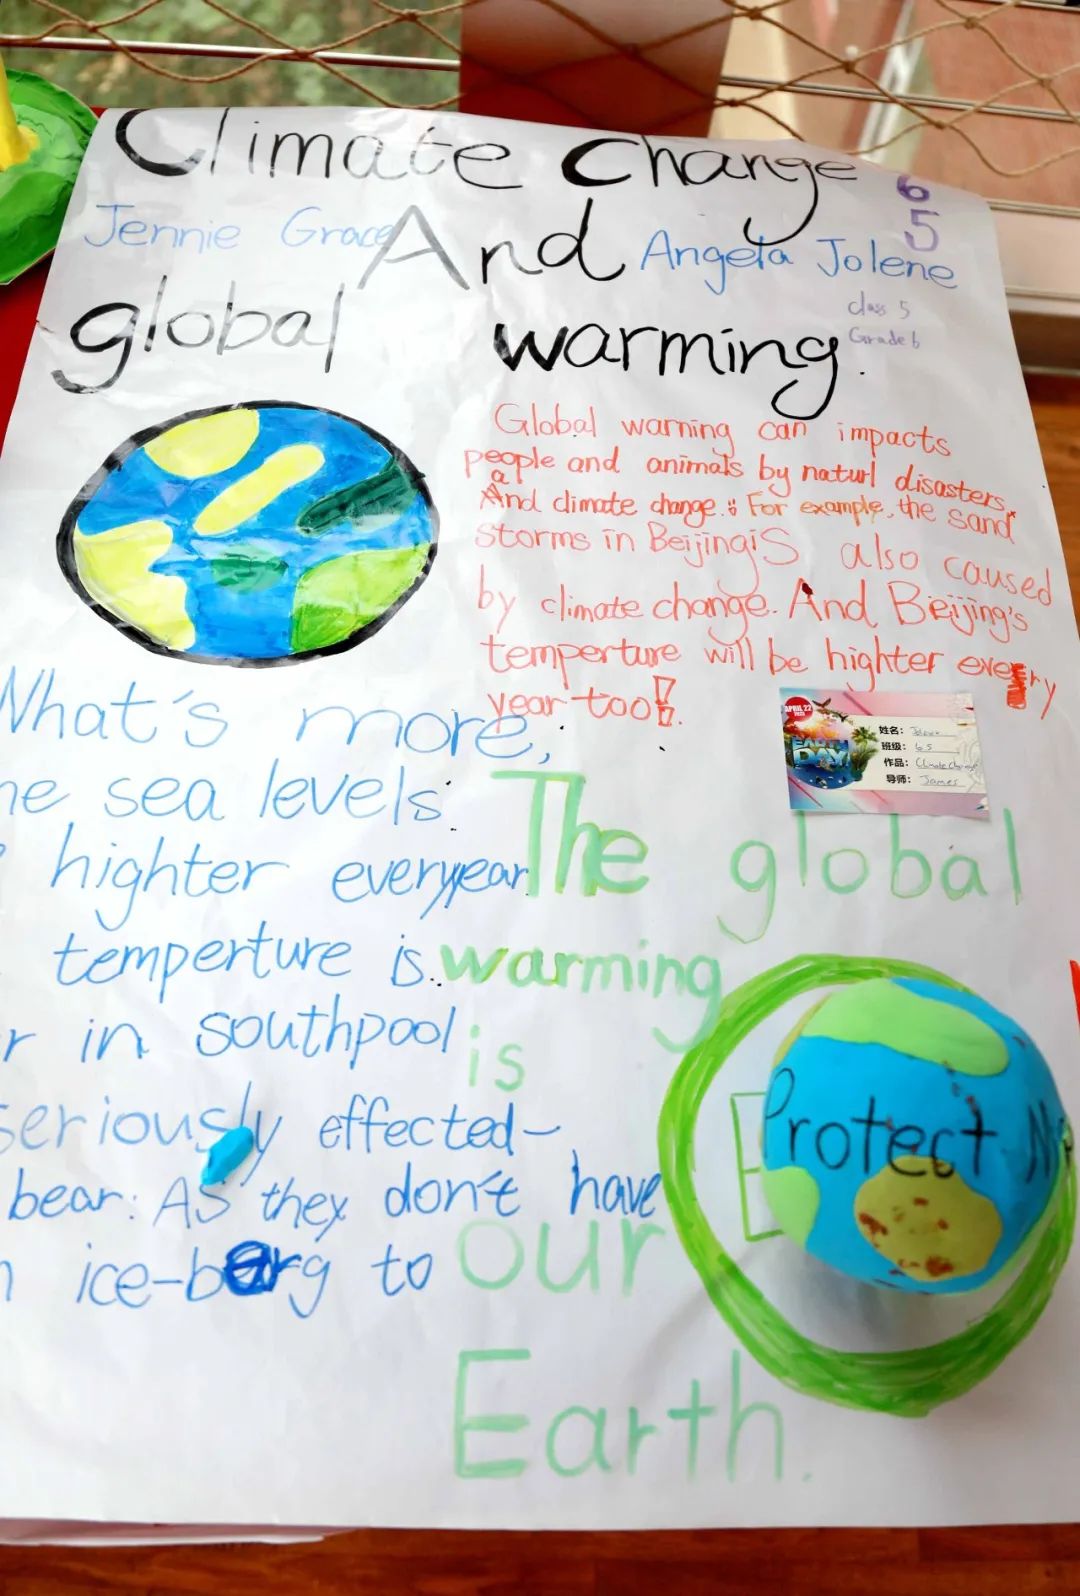 Climate Change
6
5
Jennie Grace And Angela Jolene
class 5
Grade 6
global warming.
Global warning can impacts
people and animals by naturl disasters,
And climate change. For example, the sand
storms in Beijing is also caused
by climate change. And Beijing's
temperture will be highter every
year too!
What's more,
sea levels
highter everyyear.
temperture is
in southpool
seriously effected-
bear: As they don't have
ice-berg to
APRIL 22
EARTH
DAY
姓名: Jolene
班级: 65
作品: Climate Change
导师: James
The global
warming
is
our
Earth.
Protect